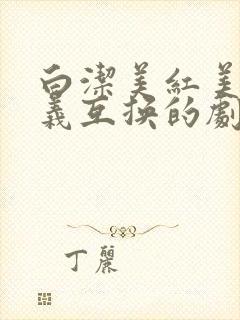 白潔美紅美
義互换的劇
丁麗